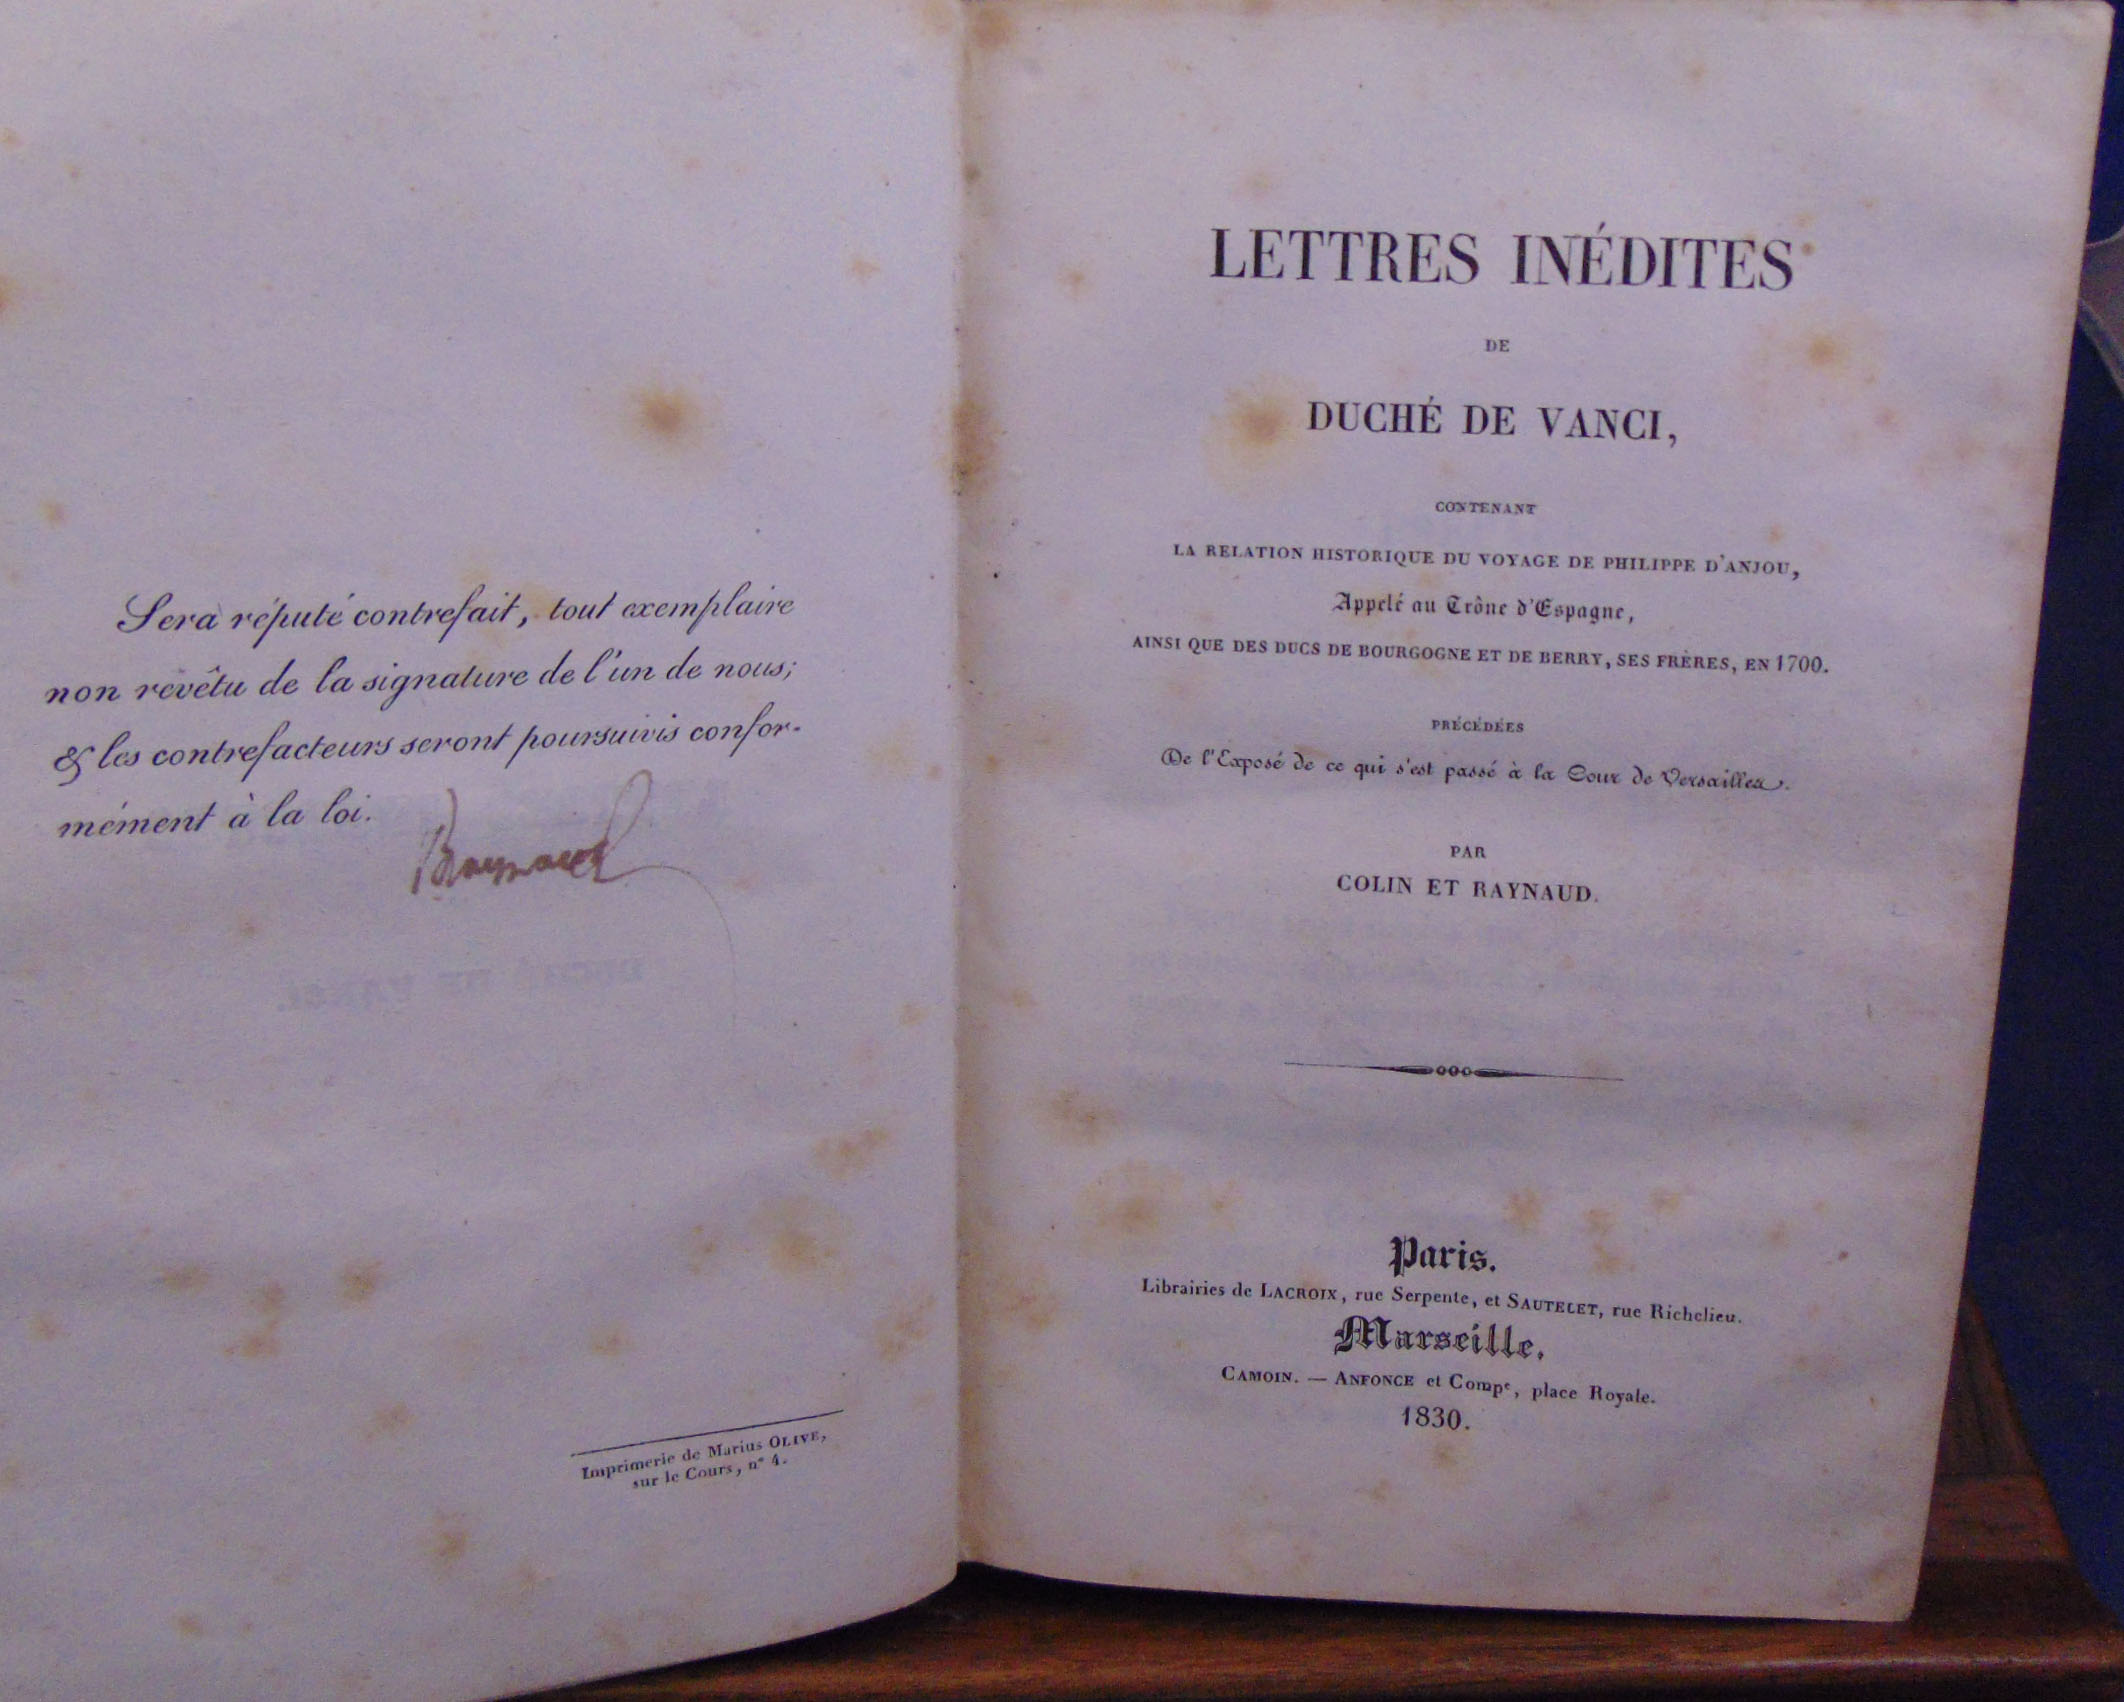 Sera réputé contrefait, tout exemplaire
non revêtu de la signature de l'un de nous;
& les contrefacteurs seront poursuivis confor-
mément à la loi.
Raynaud
Imprimerie de Marius OLIVE,
sur le Cours, n° 4.
LETTRES INÉDITES
DE
DUCHÉ DE VANCI,
CONTENANT
LA RELATION HISTORIQUE DU VOYAGE DE PHILIPPE D'ANJOU,
Appelé au Trône d'Espagne,
AINSI QUE DES DUCS DE BOURGOGNE ET DE BERRY, SES FRÈRES, EN 1700.
PRÉCÉDÉES
De l'Exposé de ce qui s'est passé à la Cour de Versailles.
PAR
COLIN ET RAYNAUD.
Paris.
Librairies de LACROIX, rue Serpente, et SAUTELET, rue Richelieu.
Marseille.
CAMOIN. — ANFONCE et Compe, place Royale.
1830.